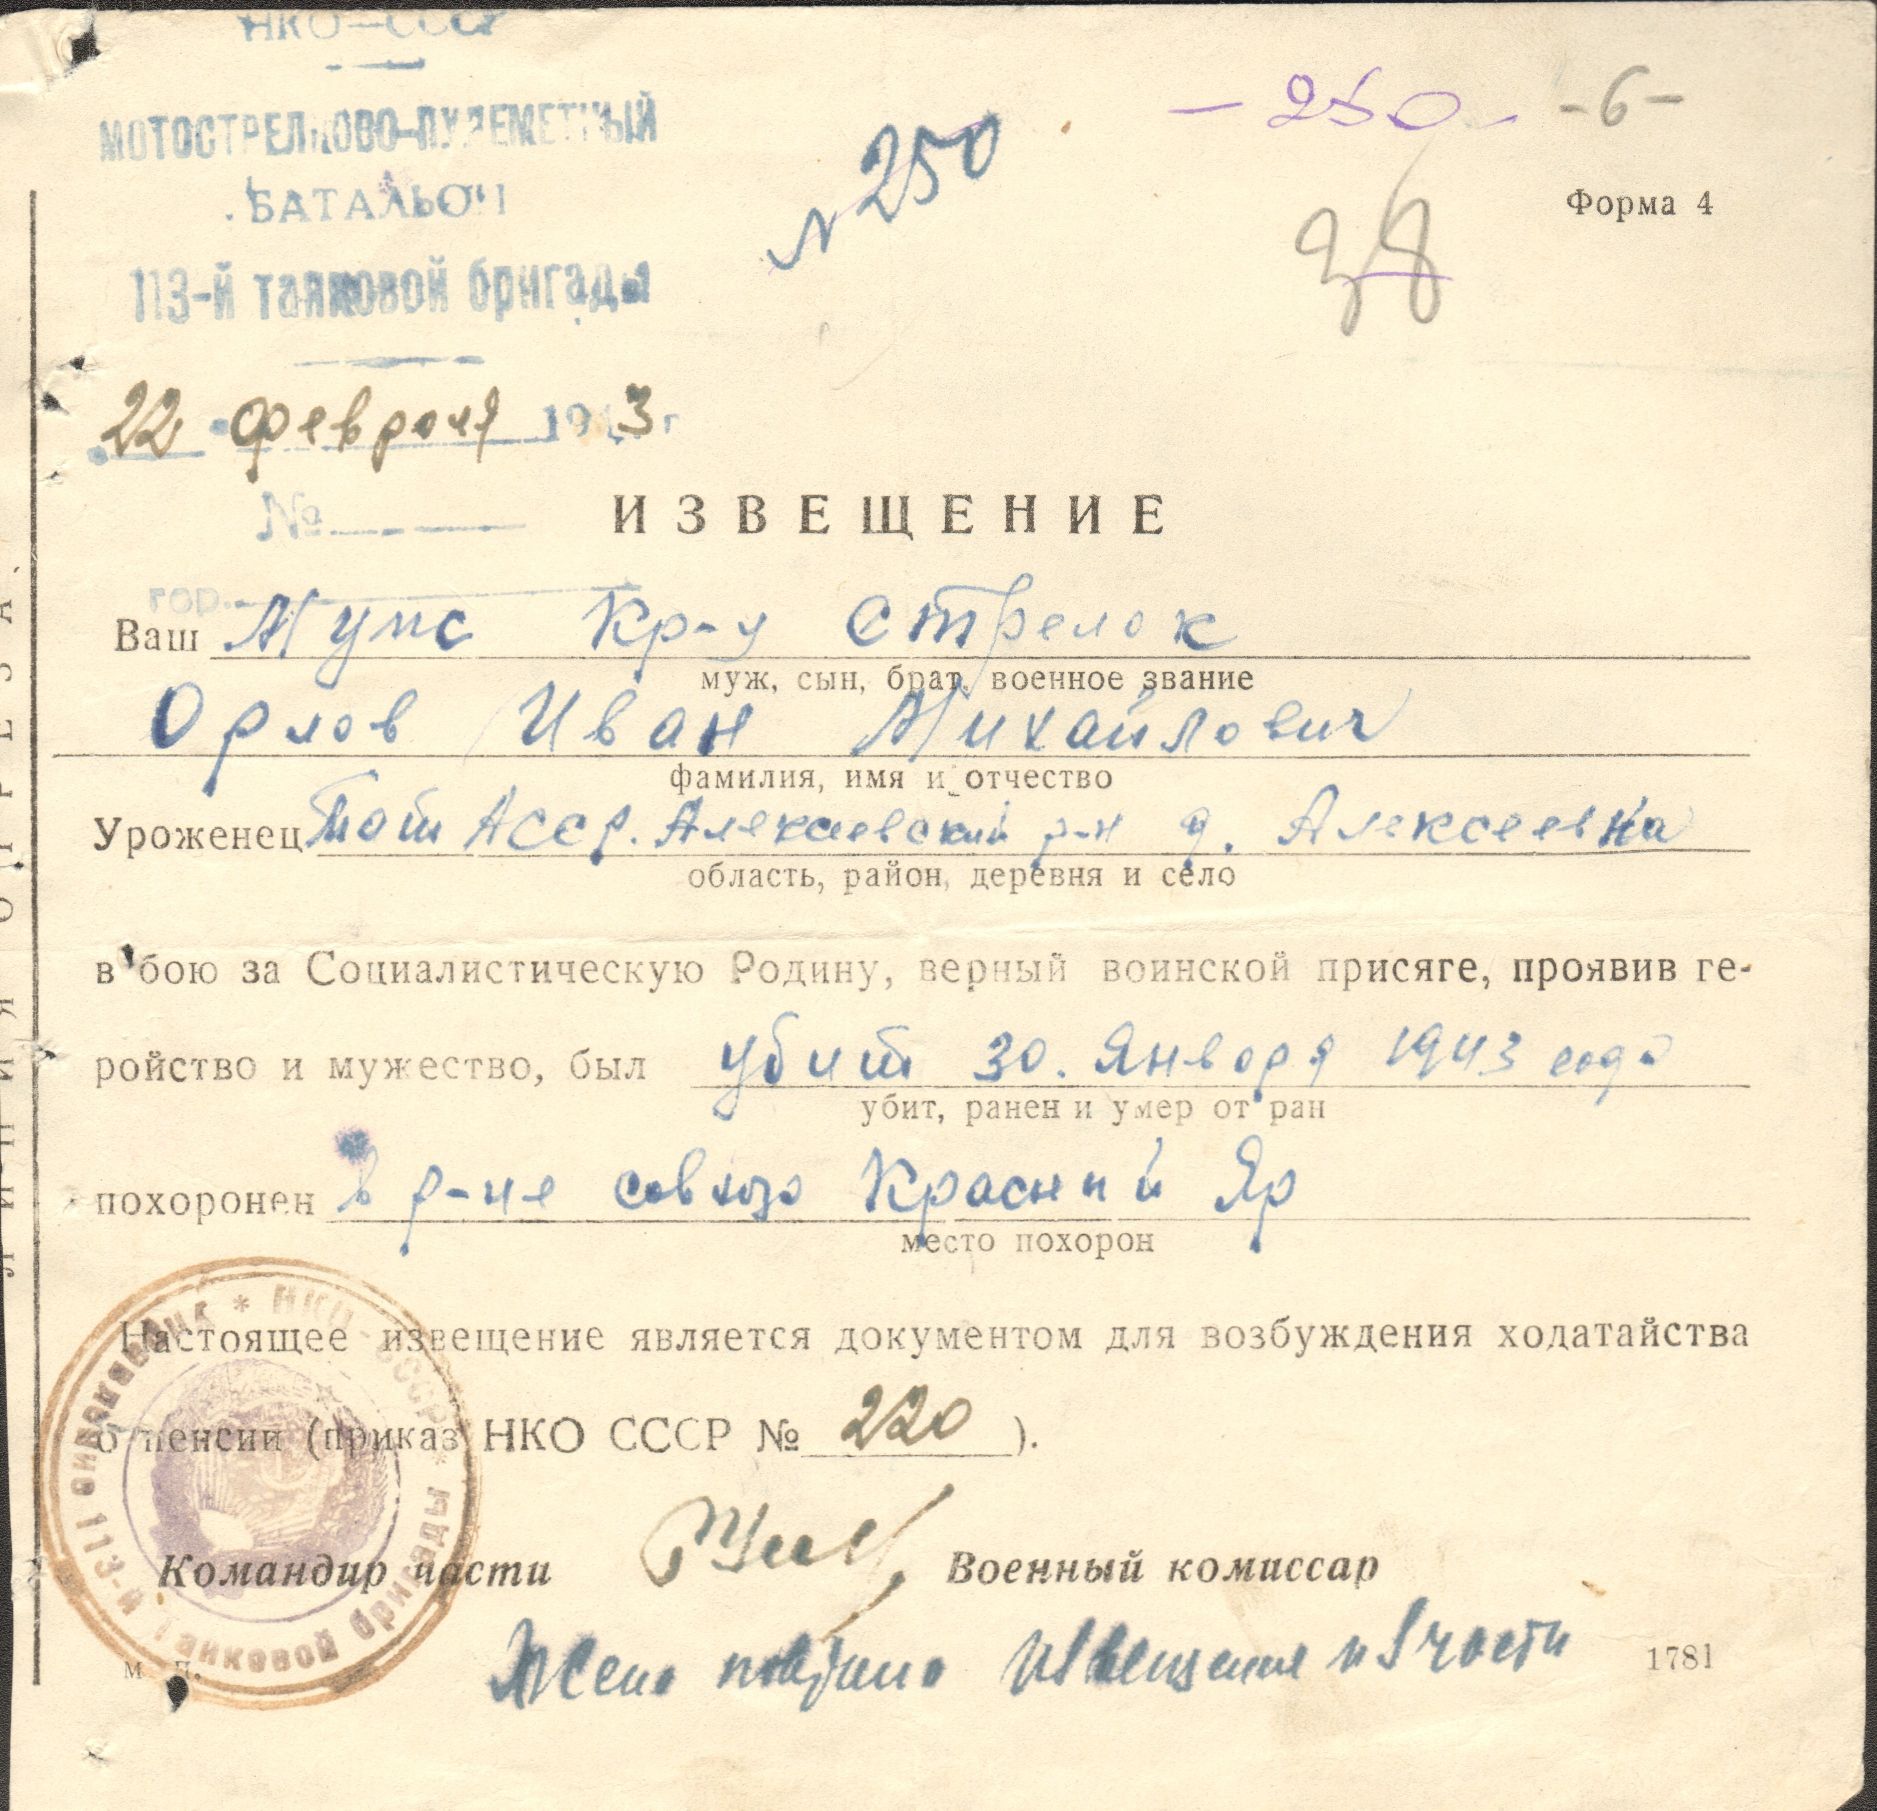 НКО—СССР
МОТОСТРЕЛКОВО-ПУЛЕМЕТНЫЙ
БАТАЛЬОН
113-й танковой бригады
22 февроля 1943 г
№
гор.
N 250
- 250 - - 6 -
38
Форма 4
ИЗВЕЩЕНИЕ
Ваш Мумс Кр-ц Стрелок
муж, сын, брат, военное звание
Орлов Иван Михайлович
фамилия, имя и отчество
Уроженец Тат АССР. Алексеевский р-н д. Алексеевка
область, район, деревня и село
в бою за Социалистическую Родину, верный воинской присяге, проявив ге-
ройство и мужество, был убит 30. Января 1943 года
убит, ранен и умер от ран
похоронен в р-не совхоза Красный Яр
место похорон
Настоящее извещение является документом для возбуждения ходатайства
о пенсии (приказ НКО СССР № 220 ).
Командир части Военный комиссар
Жено извещение из части
м. п.
1781
* НКО - СССР * 113-й танковой бригады
ЛИНИЯ ОТРЕЗА